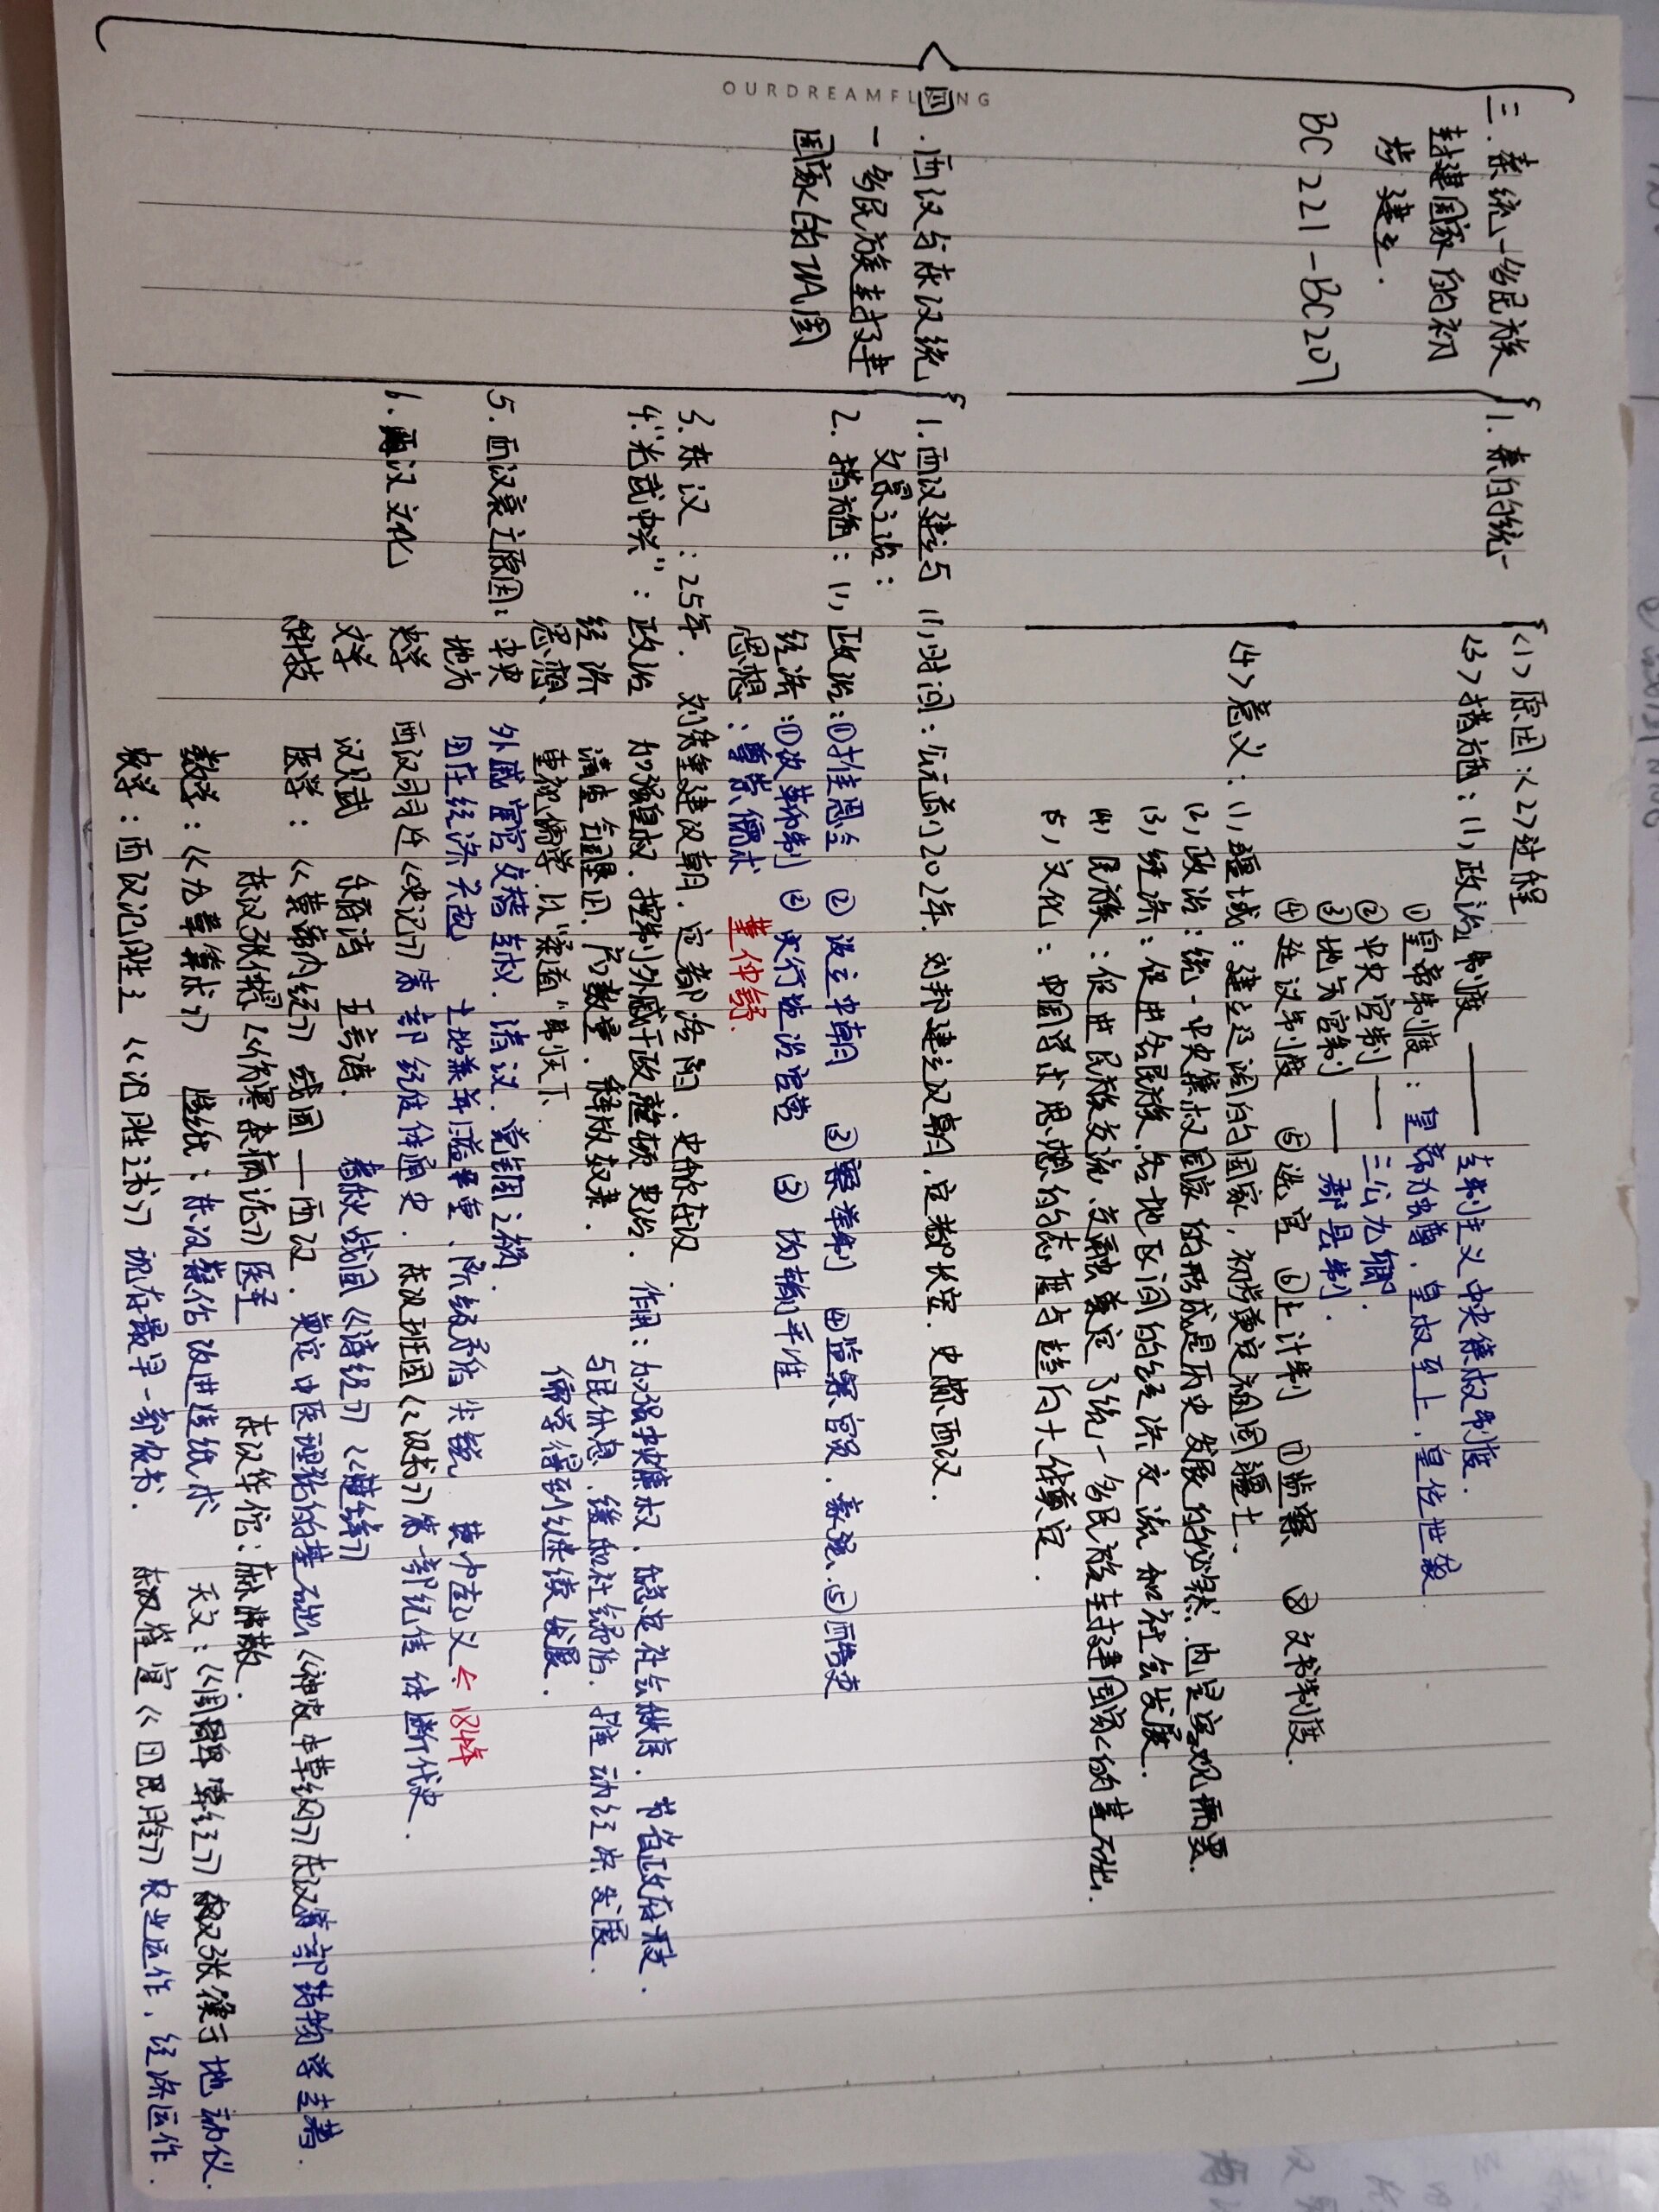 OURDREAMFLYING
三.秦统一多民族
封建国家的初
步建立.
BC 221-BC207
1.秦的统一
<1>原因:<2>过程
<3>措施:(1)政治制度——专制主义中央集权制度.
①皇帝制度:皇帝独尊,皇权至上,皇位世袭
②中央官制——三公九卿.
③地方官制——郡县制.
④廷议制度 ⑤选官 ⑥上计制 ⑦监察 ⑧文书制度.
<4>意义:(1)疆域:建立辽阔的国家,初步奠定祖国疆土.
(2)政治:统一中央集权国家的形成是历史发展的必然,也是客观需要.
(3)经济:促进各民族、各地区间的经济交流和社会发展.
(4)民族:促进民族交流、交融奠定了统一多民族封建国家的基础.
(5)文化:中国学术思想的态度与趋向十一体奠定.
四.西汉与东汉统
一多民族封建
国家的巩固
1.西汉建立与 (1)时间:公元前202年.刘邦建立汉朝,定都长安.史称西汉.
文景之治:
2.措施:(1)政治:①推恩令 ②设立中朝 ③察举制 ④监察官员、豪强、⑤酷吏
经济:①改革币制 ②实行盐治官营 ③均输平准
思想:尊崇儒术 董仲舒.
3.东汉:25年.刘秀重建汉朝,定都洛阳,史称东汉.
4."光武中兴":政治 加强皇权,控制外戚干政整顿吏治. 作用:加强中央集权,稳定社会秩序.节省政府开支.
经济 清查全国垦田、户数量,释放奴隶. 与民休息,缓和社会矛盾.推动经济发展.
思想、重视儒学.以"柔道"治天下. 儒学得到继续发展.
5.西汉衰亡原因:中央 外戚宦官交替专权.清议.党锢之祸.
地方 田庄经济兴起 土地兼并严重、阶级矛盾尖锐 黄巾起义<184年
6.两汉文化 史学 西汉司马迁《史记》第一部纪传体通史. 东汉班固《汉书》第一部纪传体断代史.
文学 汉赋 乐府诗 五言诗. 春秋战国《诗经》《楚辞》
科技 医学:《黄帝内经》战国—西汉.奠定中医理论的基础《神农本草纲》东汉第一部药物学专著.
东汉张仲景《伤寒杂病论》医圣 东汉华佗:麻沸散.
数学:《九章算术》 造纸:东汉蔡伦改进造纸术 天文:《周髀算经》东汉张衡于地动仪.
农学:西汉氾胜之《氾胜之书》现存最早一部农书. 东汉崔寔《四民月令》农业运作、经济运作.